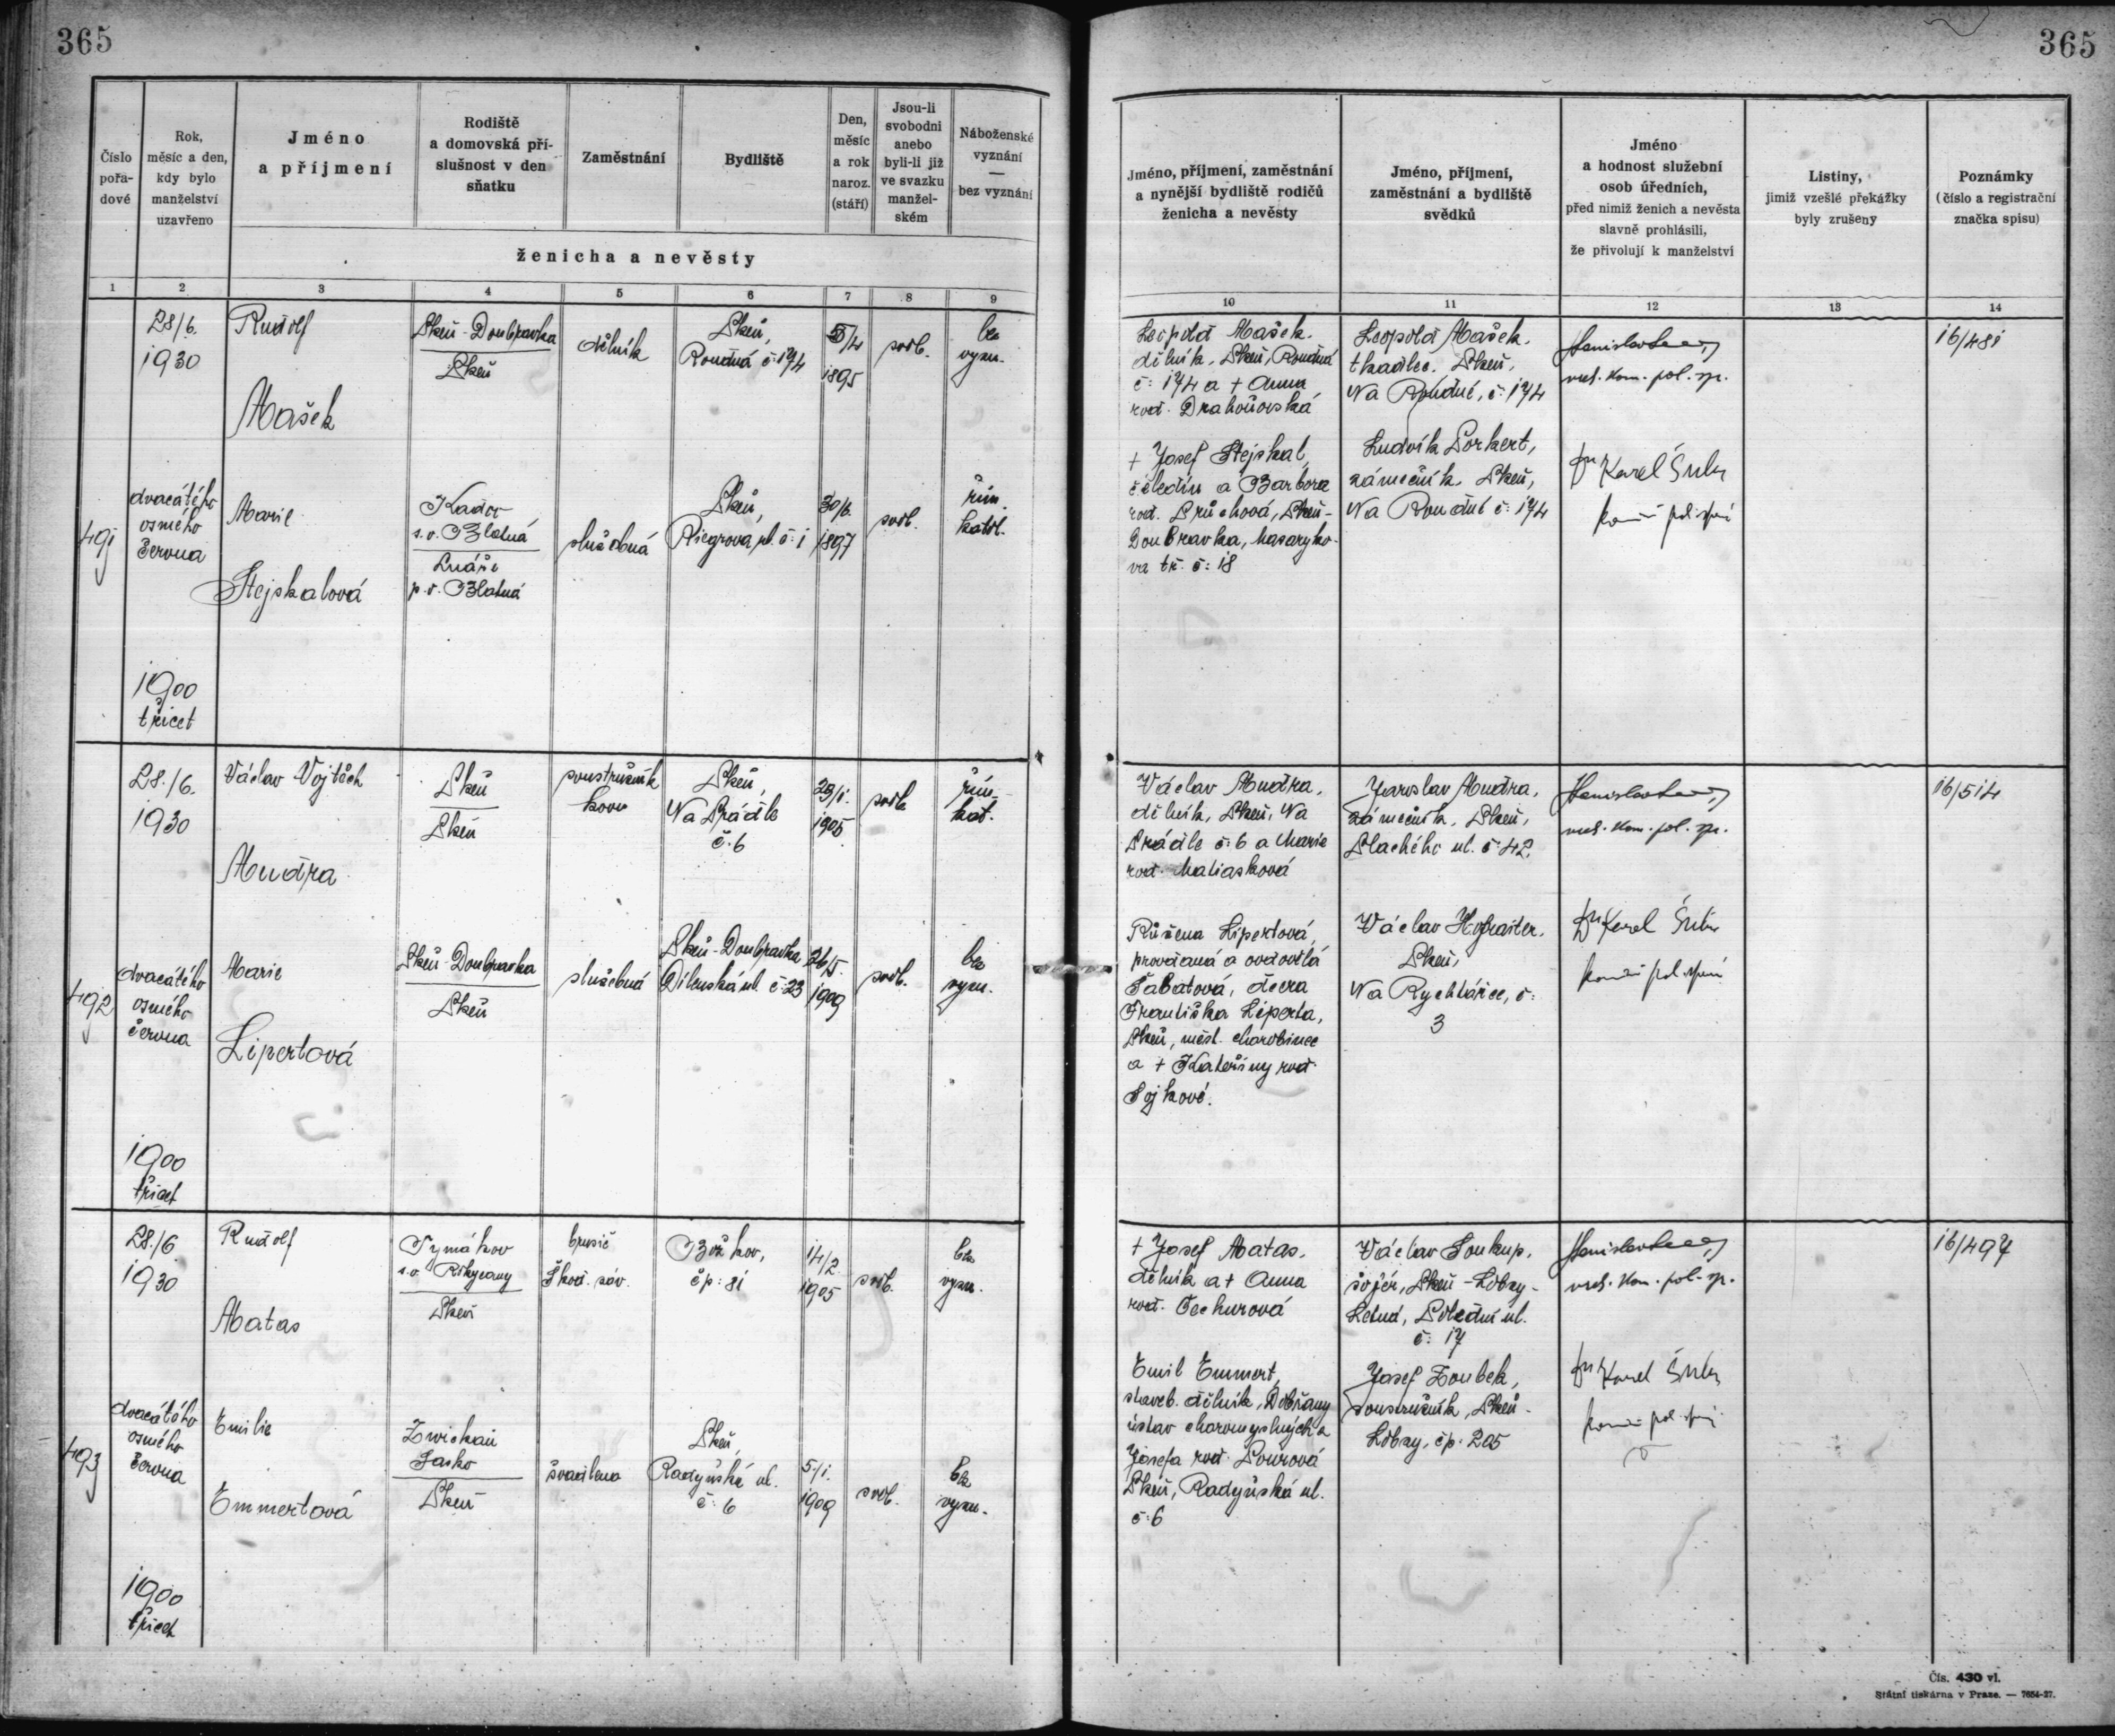 365
365
Číslo
pořa-
dové
Rok,
měsíc a den,
kdy bylo
manželství
uzavřeno
Jméno
a příjmení
Rodiště
a domovská pří-
slušnost v den
sňatku
Zaměstnání
Bydliště
Den,
měsíc
a rok
naroz.
(stáří)
Jsou-li
svobodni
anebo
byli-li již
ve svazku
manžel-
ském
Náboženské
vyznání
—
bez vyznání
ženicha a nevěsty
1 2 3 4 5 6 7 8 9
Jméno, příjmení, zaměstnání
a nynější bydliště rodičů
ženicha a nevěsty
Jméno, příjmení,
zaměstnání a bydliště
svědků
Jméno
a hodnost služební
osob úředních,
před nimiž ženich a nevěsta
slavně prohlásili,
že přivolují k manželství
Listiny,
jimiž vzešlé překážky
byly zrušeny
Poznámky
(číslo a registrační
značka spisu)
10 11 12 13 14
491
28/6.
1930
dvacátého
osmého
června
1900
třicet
Rudolf
Mašek
Plzeň-Doubravka
Plzeň
dělník
Plzeň,
Roudná č: 174
5/4
1895
svob.
bez
vyzn.
Marie
Stejskalová
Kadov
s.o. Blatná
Lnáře
p.o. Blatná
služebná
Plzeň,
Riegrova ul. č: 1
30/6.
1897
svob.
řím.
katol.
Leopold Mašek,
dělník, Plzeň, Roudná
č: 174 a + Anna
rod. Drahoňovská
+ Josef Stejskal,
čeledín a Barbora
rod. Průchová, Plzeň-
Doubravka, Masaryko-
va tř. č: 18
Leopold Mašek,
tkadlec, Plzeň,
Na Roudné, č: 174
Ludvík Porkert,
zámečník, Plzeň,
Na Roudné č: 174
vrch. kom. pol. spr.
Dr Karel
16/481
492
28./6.
1930
dvacátého
osmého
června
1900
třicet
Václav Vojtěch
Mudra
Plzeň
Plzeň
soustružník
kovu
Plzeň,
Na Prádle
č. 6
29/1.
1905
svob.
řím.
kat.
Marie
Lipertová
Plzeň-Doubravka
Plzeň
služebná
Plzeň-Doubravka
Dílenská ul. č: 23
26/5.
1909
svob.
bez
vyzn.
Václav Mudra,
dělník, Plzeň, Na
Prádle č: 6 a Marie
rod. Maliasková
Růžena Lipertová,
provdaná a ovdovělá
Šabatová, dcera
Františka Liperta,
Plzeň, měst. chorobinec
a + Kateřiny rod.
Sojkové.
Jaroslav Mudra,
zámečník, Plzeň,
Plachého ul. č: 42.
Václav Hofraiter,
Plzeň,
Na Rychtářce, č:
3
vrch. kom. pol. spr.
Dr Karel
16/514
493
28./6
1930
dvacátého
osmého
června
1900
třicet
Rudolf
Matas
Tymákov
s.o. Rokycany
Plzeň
brusič
Škod. záv.
Božkov,
čp: 81
14/2.
1905
svob.
bez
vyzn.
Emilie
Emmertová
Zwickau
Sasko
Plzeň
švadlena
Plzeň,
Radyňská ul.
č: 6
5/1.
1909
svob.
bez
vyzn.
+ Josef Matas,
dělník a + Anna
rod. Čechurová
Emil Emmert,
staveb. dělník, Dobřany
ústav choromyslných a
Josefa rod. Pourová
Plzeň, Radyňská ul.
č: 6
Václav Soukup,
šofér, Plzeň-Lobzy-
Letná, Polední ul.
č: 17
Josef Zoubek,
soustružník, Plzeň-
Lobzy, čp. 205
vrch. kom. pol. spr.
Dr Karel
16/497
Čís. 430 vl.
Státní tiskárna v Praze. — 7654-27.